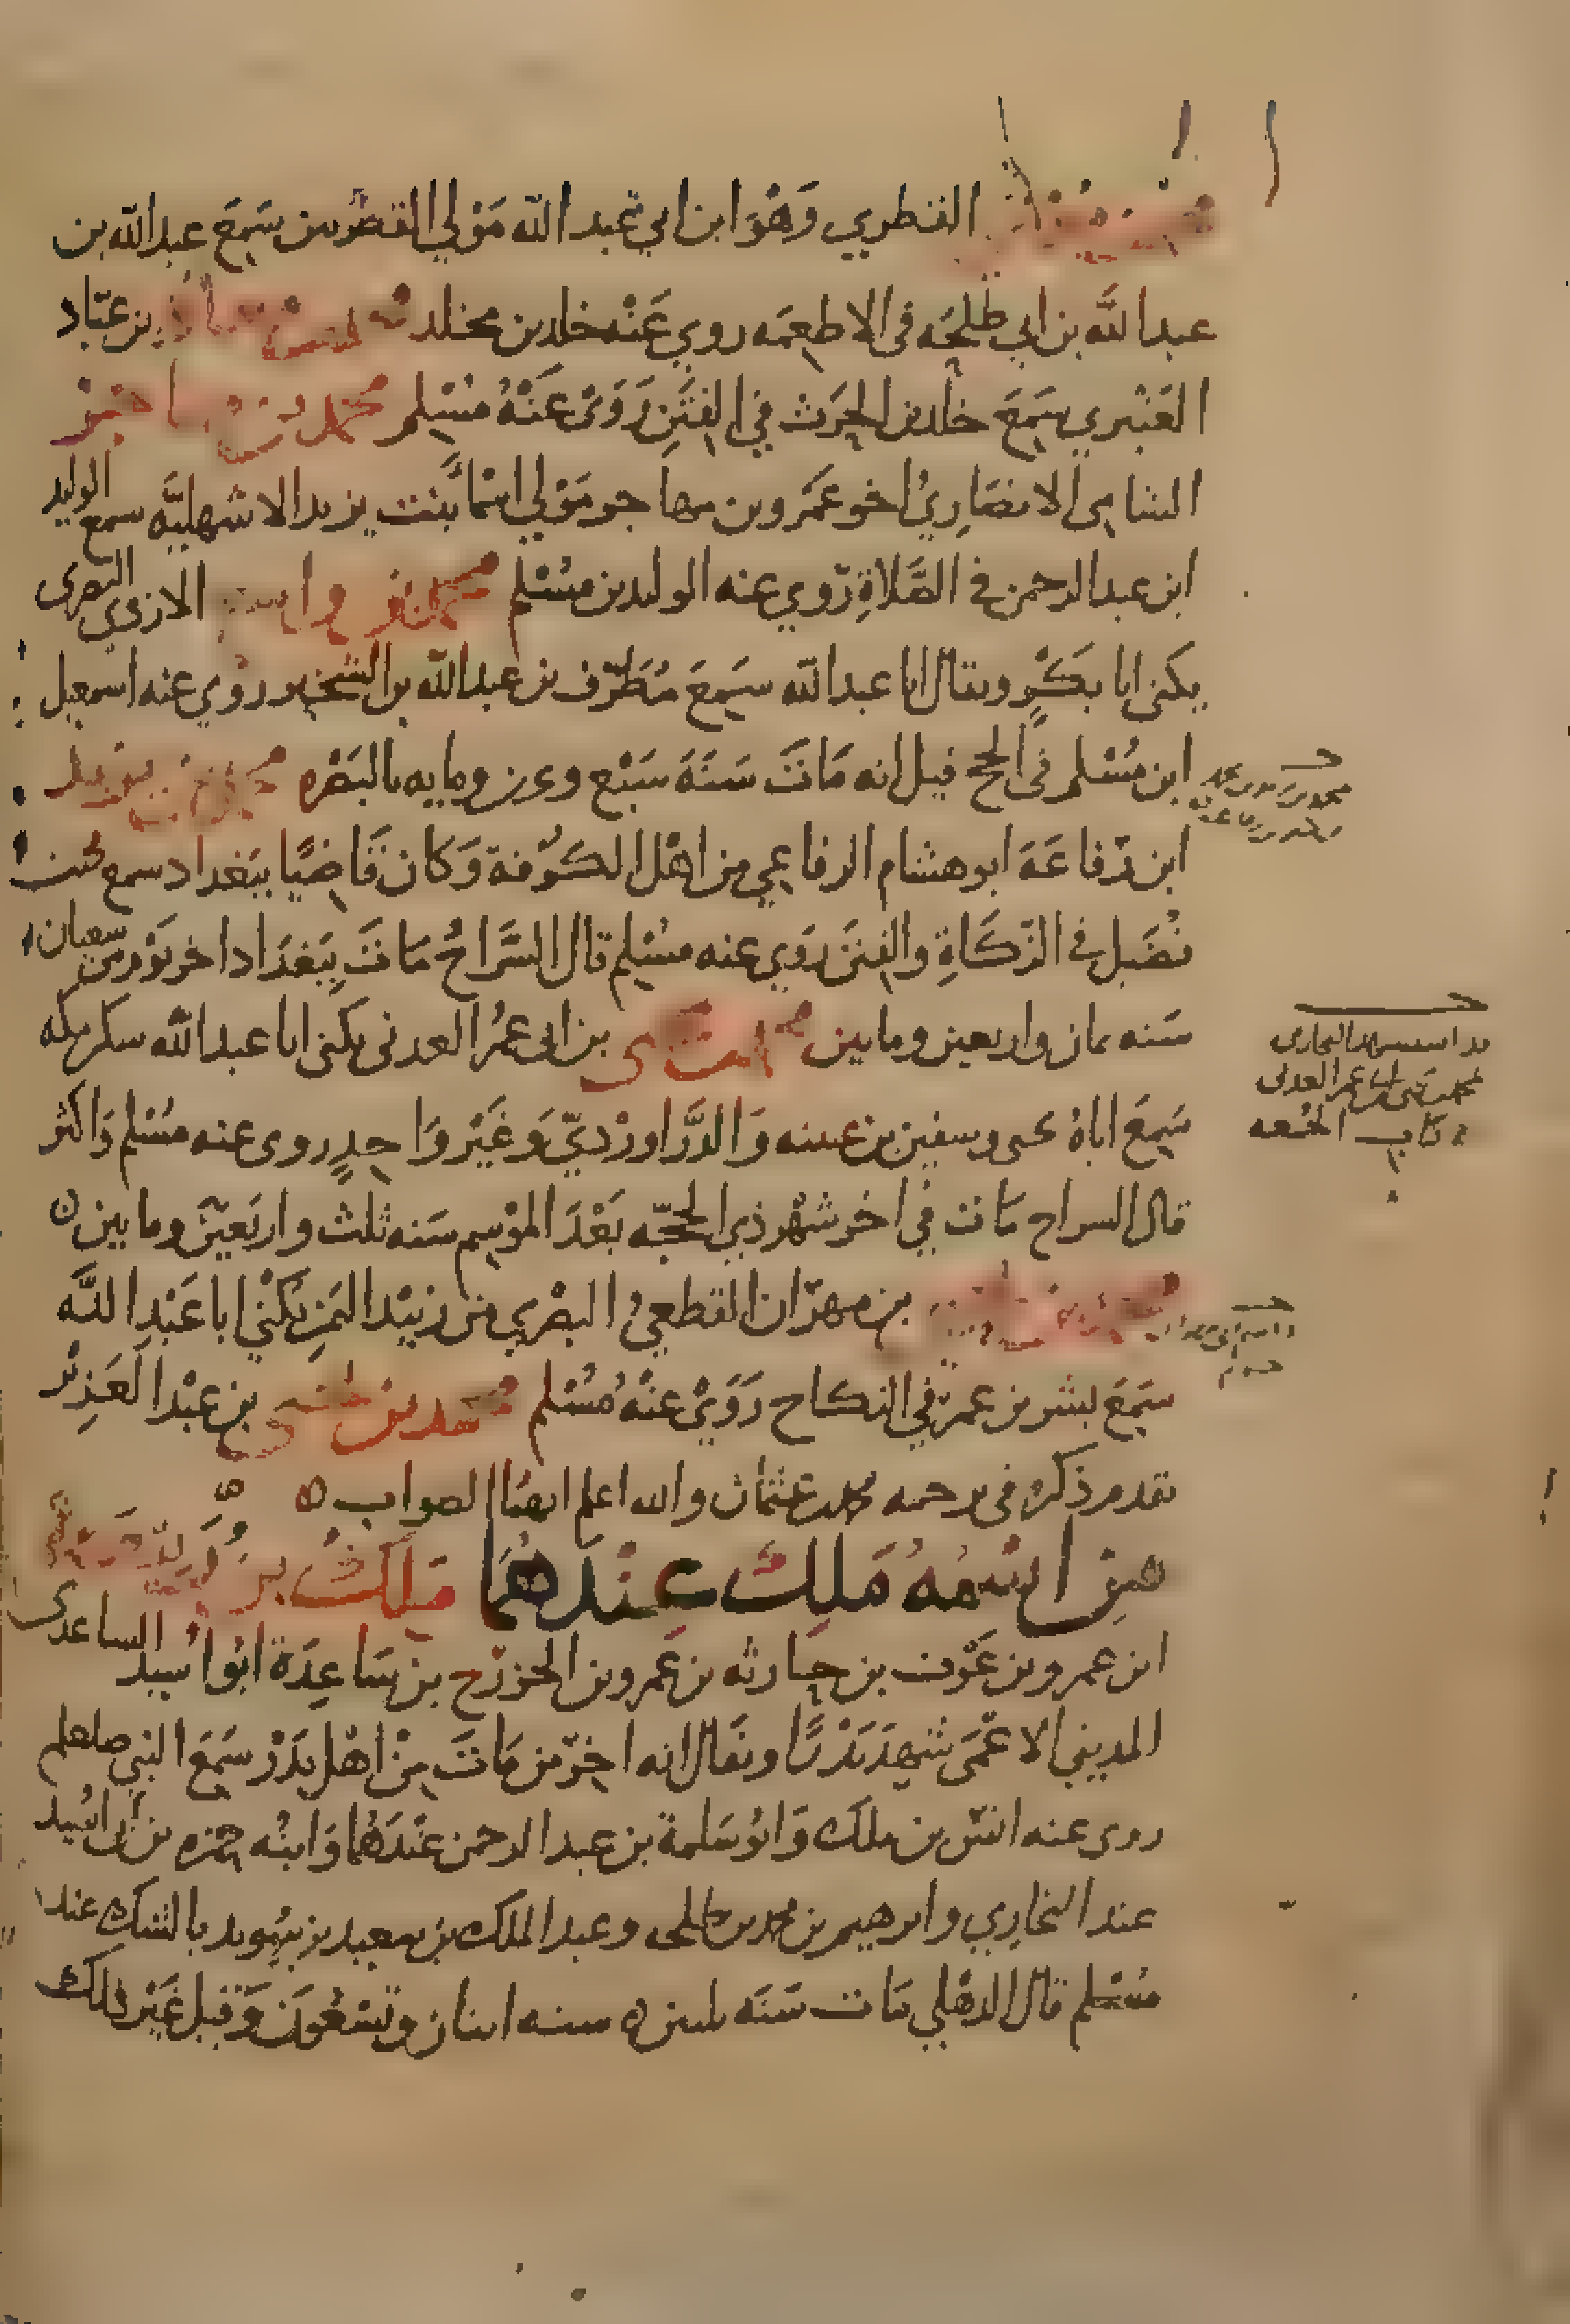 محمد بن موسى الفطري وهو ابن ابي عبد الله مولي الفطرىىن سمع عبد الله بن
عبد الله بن ابي طلحه في الاطعمه روي عنه خلد بن مخلد محمد بن معاذ بن عباد
العنبري سمع خلد بن الحرث في الفتن روى عنه مسلم محمد بن مهاجر
الشامي الانصاري اخو عمرو بن مهاجر مولي اسما بنت يزيد الاشهليه سمع الوليد
ابن عبد الرحمن في الصلاة روي عنه الوليد بن مسلم محمد بن واسع الازدي البصرى
يكنى ابا بكر ويقال ابا عبد الله سمع مطرف بن عبد الله بن الشخير روي عنه اسمعيل
ابن مسلم في الحج قيل انه مات سنة سبع وعرىن ومايه بالبصره محمد بن يزيد
ابن رفاعة ابو هشام الرفاعي من اهل الكوفة وكان قاضيا ببغداد سمع محمد بن
فضيل في الزكاة والفتن روي عنه مسلم قال السراج مات ببغداد اخر يوم من شعبان
سنه ثمان واربعين ومايتين محمد بن يحيى بن ابي عمر العدني يكنى ابا عبد الله سكن مكه
سمع اباه يحيى وسفين بن عيينه والدراوردي وغير واحد روى عنه مسلم واكثر
قال السراج مات في اخر شهر ذي الحجه بعد الموسم سنه ثلث واربعين ومايتين
محمد بن يحيى بن مهران القطعي البصري من زبيد اليمن يكنى ابا عبد الله
سمع بشر بن عمر في النكاح روى عنه مسلم محمد بن يحيى بن عبد العزيز
تقدم ذكره في ترجمه محمد بن عثمان والله اعلم ايضا الصواب
من اسمه ملك عندهما ملك بن ربيعة
ابن عمرو بن عوف بن حارثه بن عمرو بن الخزرج بن ساعدة ابو اسيد الساعدى
المديني الاعمى شهد بدرا ويقال انه اخر من مات من اهل بدر سمع النبي صلعلم
روى عنه انس بن ملك وابو سلمة بن عبد الرحمن عندهما وابنه حمزه بن ابي اسيد
عند البخاري وابرهيم بن محمد بن طلحه وعبد الملك بن سعيد بن سويد بالشك عند
مسلم قال الذهلي مات سنه ثلىن سنه اثنان وتسعون وقيل غير ذلك
البخارى
محمد بن يحيى بن ابي عمر العدني
كتاب الجمعه